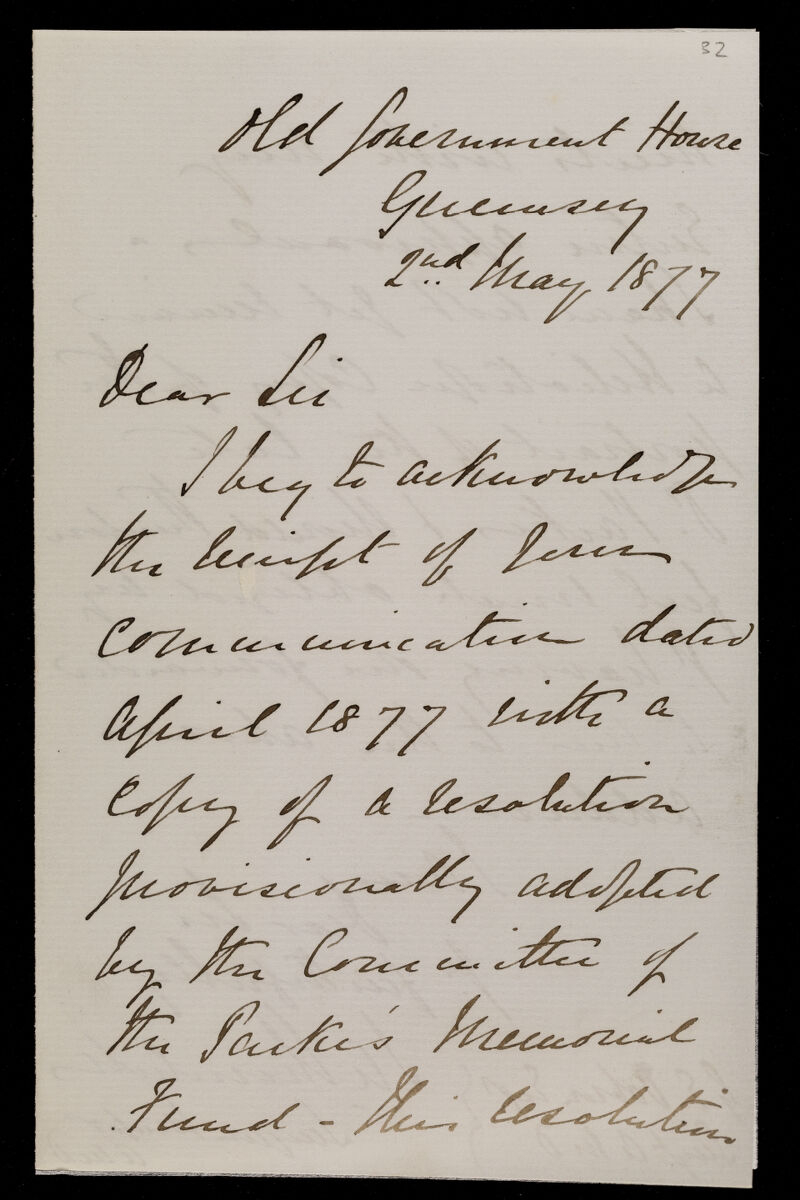 32
Old Government House
Guernsey
2nd May 1877
Dear Sir
I beg to acknowledge
the receipt of your
communication dated
April 1877 with a
copy of a resolution
provisionally adopted
by the Committee of
the Parke's Memorial
Fund - This resolution